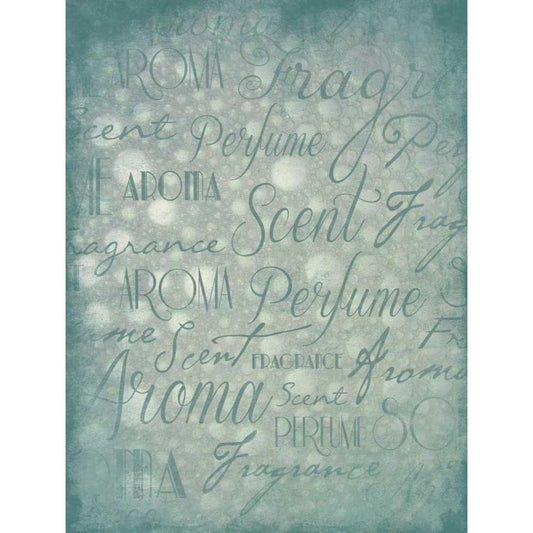 Aroma
AROMA Fragr
Scent Perfume Per
ME AROMA Scent Frag
ragrance
AROMA Perfume S
ume Scent FRAGRANCE Aroma Fr
Aroma Scent
PERFUME SC
OMA Fragrance